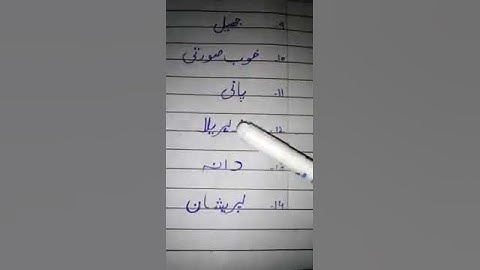 ۹. جھیل
۱۰. خوب صورتی
۱۱. پانی
۱۲.
۱۳. دانہ
۱۴. پریشان